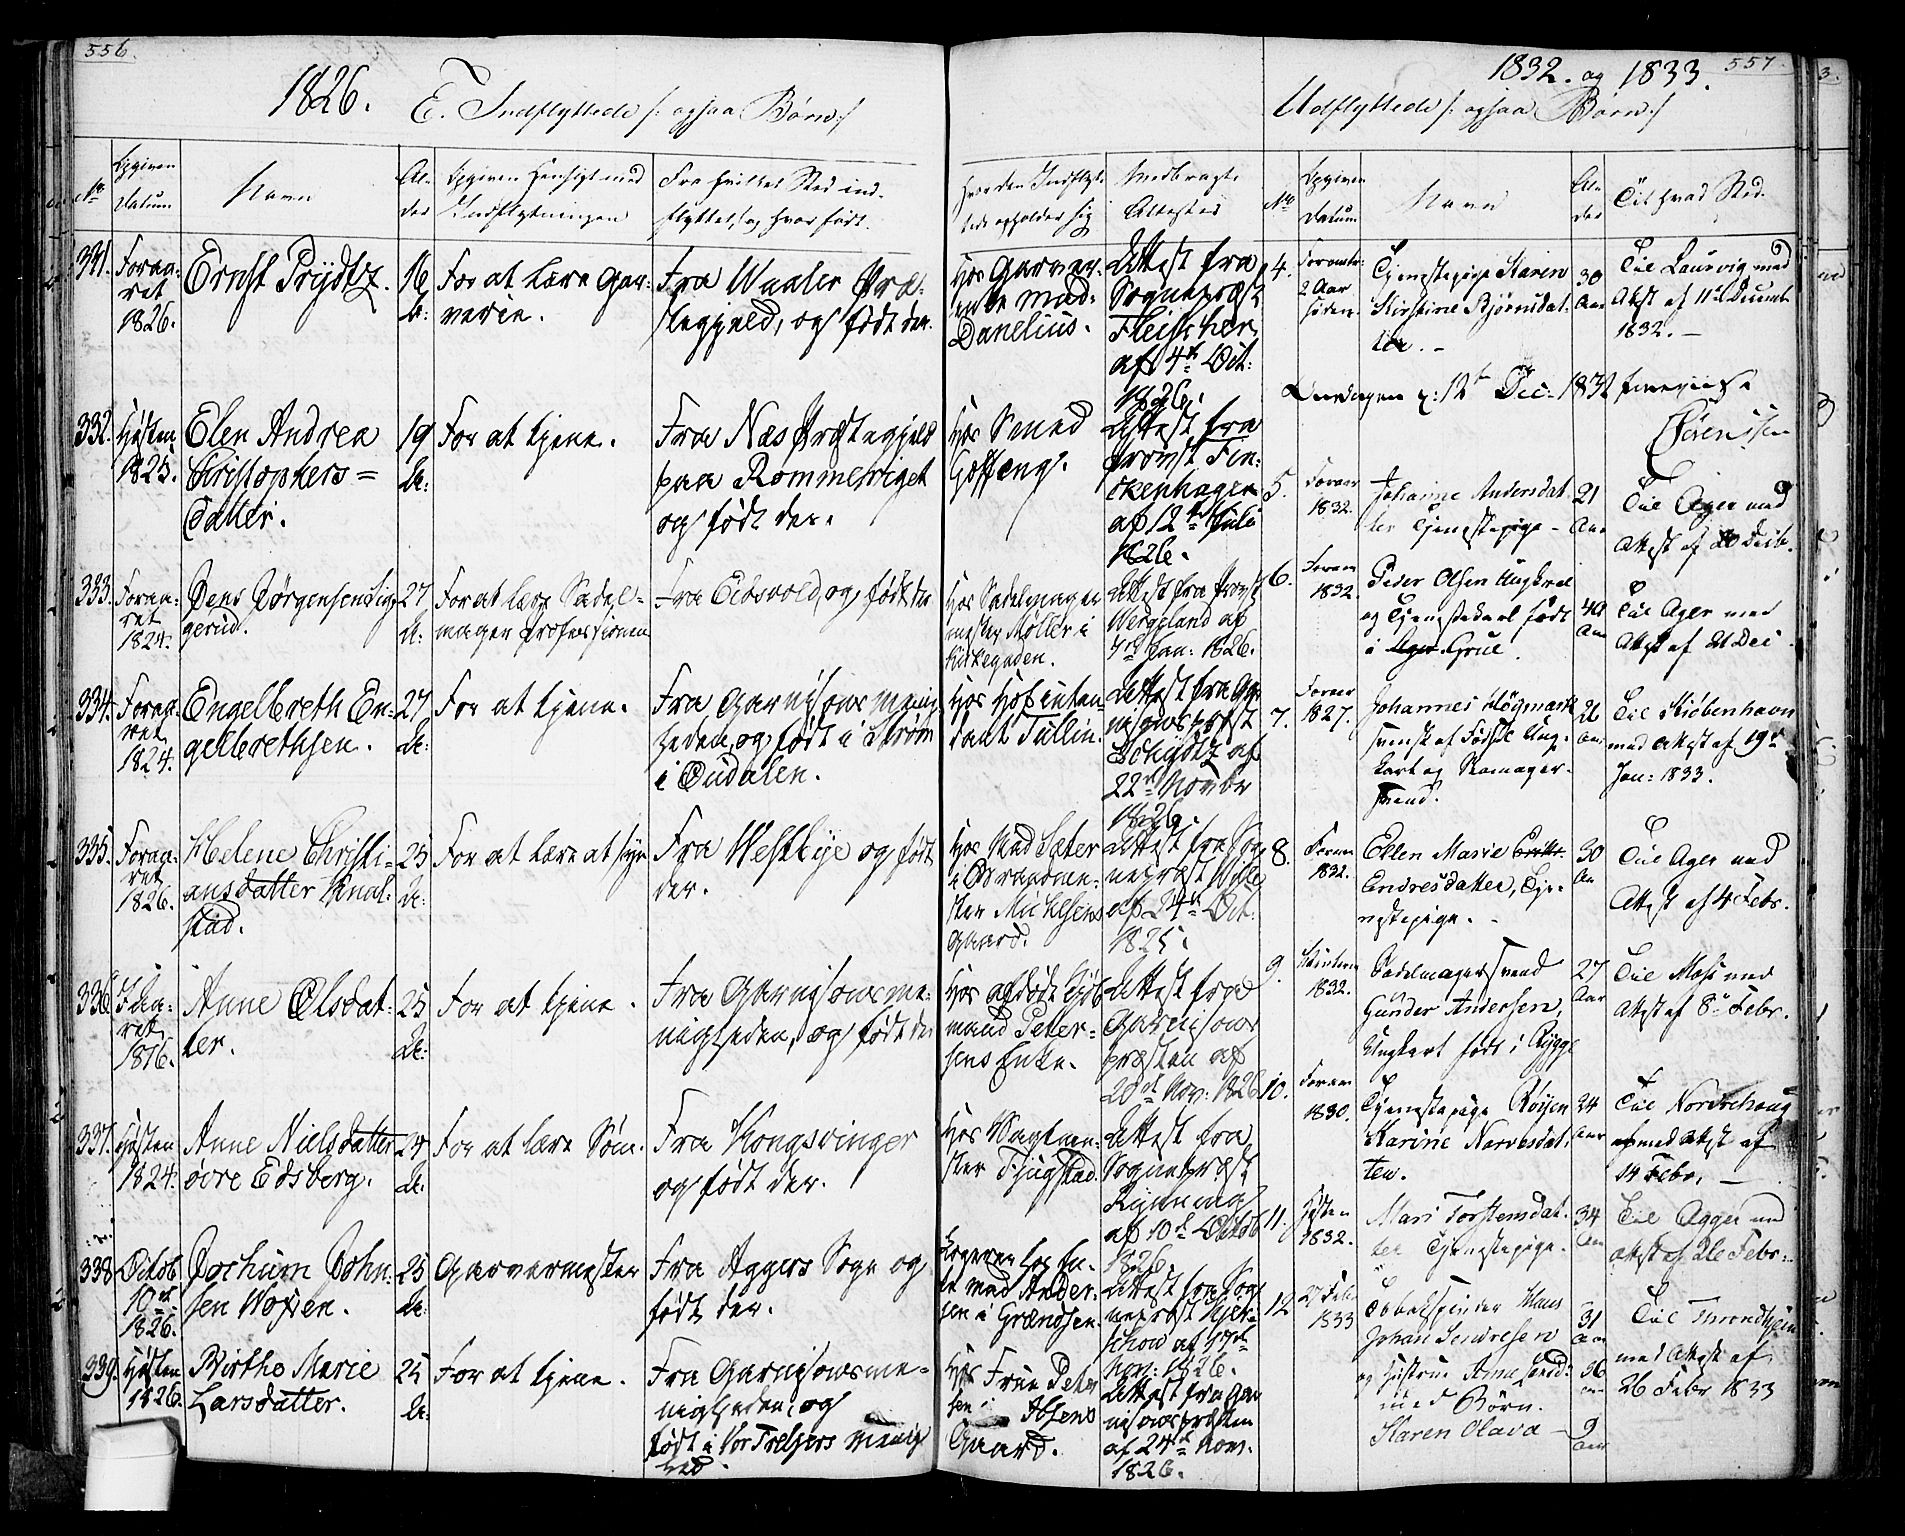 556.
1826. E. Indflyttede /: ogsaa Børn :/
No
Opgiven Datum
Navn
Alder
Opgiven Hensigt med Indflytningen
Fra hvilket Sted indflyttet, og hvor født.
Hvor den Indflyttede opholder sig
Medbragte Attester
331.
Foraaret
1826.
Ernst Prydtz.
16
A:
For at lære Garverie.
Fra Waaler Præstegjeld, og født der.
Hos Garver
Danelius.
Attest fra
Sognepræst
Fleischer
af 4de Oct:
1826.
332.
Høsten
1825.
Elen Andrea
Christophers=
datter.
19
A:
For at tjene.
Fra Næs Præstegjeld
paa Rommeriget
og født der.
Hos Smed
Attest fra
Provst Finckenhagen
af 12te Juli
1826.
333.
Foraaret
1824.
Jens Jørgensen
27
A:
For at lære Sadelmager Professionen
Fra Eidsvold, og født der
Hos Sadelmagermester Møller i
Kirkegaden.
Attest fra Provst
Wergeland af
Jan: 1826.
334.
Foraaret
1824.
Engelbreth Engelbrethsen.
27
A:
For at tjene.
Fra Garnisons Menigheden, og født i Strøm
i Oudalen.
Hos Hofintendant Tullin.
Attest fra Garnisonspræst
Schydtz af
22de Novbr
1826.
335.
Foraaret
1826.
Helene Christiansdatter Knalstad.
25
A:
For at lære at sye
Fra Westbye og født
der.
Hos Mad Sæter
i Brandmester Michelsens
Gaard.
Attest fra Sognepræst
af 24de Oct:
1825.
336.
1816.
Anne Olsdatter.
25
A:
For at tjene.
Fra Garnisonsmenigheden, og født der
Hos afdøde Kjøbmand Petersens Enke.
Attest fra
Garnisons
præsten af
20de Nov: 1826
337.
Høsten
1824.
Anne Nielsdatter
øvre Edsberg.
24
A:
For at lære Søm.
Fra Kongsvinger
og født der.
Hos Vagtmester Fjugstad.
Attest fra
Sognepræst
Rynning
af 10de Octob
1826.
338
Octob
10de
1826.
Jochum Johnsen Woxen.
25
A:
Garvermester
Fra Aggers Sogn og
født der.
Logerer hos Enke Mad Andersen i Grændsen.
Attest fra Sognepræst
af 17de
Nov: 1826.
339.
Høsten
1826.
Birthe Marie
Larsdatter.
25
A:
For at tjene.
Fra Garnisonsme=
nigheden, og
født i Vor Frelsers Menighed.
Hos Frue Petersen i Ibsens
Gaard.
Attest fra Garnisonspræsten
af 24de Nov.
1826.
557.
1832. og 1833.
Udflyttede /: ogsaa Børn :/
No
Opgiven Datum
Navn
Alder
Til hvad Sted.
4.
2 Aar
siden
Tjenestepige Karen
Kirstine Bjørnsdatter. –
30
Aar
Til Laurvig med
Attest af 11te Decemb
1832. –
12te Dec: 1832
Sørenssen
5.
Foraar
1832.
Johanne Andersdatter Tjenestepige –
21
Aar
Til Ager med
Attest af 20 Decbr.
6.
Foraar
1832.
Peder Olsen Ungkarl
og Tjenestekarl født
i Ager Grue.
40
Aar
Til Ager med
Attest af 21 Dec
7.
Foraar
1827.
Johannes Høgmark
svensk af Fødsel Ungkarl og Skomagersvend.
26
Aar
Til Kiøbenhavn
med Attest af 19de
Jan: 1833.
8.
Foraar
1832.
Ellen Marie
Endresdatter, Tjenestepige. –
30
Aar
Til Ager med
Attest af 4 Febr.
9.
1832.
Sadelmagersvend
Gunder Andersen,
Ungkarl født i Rygge
27
Aar
Til Moss med
Attest af 8de Febr.
10.
Foraar
1830.
Tjenestepige
Karine Narvesdatter.
24
Aar
Til Nordrehoug
med Attest af
14 Febr. –
11.
Høsten
1832.
Mari Torstensdatter Tjenestepige.
34
Aar
Til Agger med
Attest af 26 Febr.
12
1833
Tobakspinder Hans
Johan Sendresen
og Hustrue
med Børn.
Karen Olava –
31
Aar
36
9
Aar
Til Trondhjem
med Attest af
26 Febr 1833